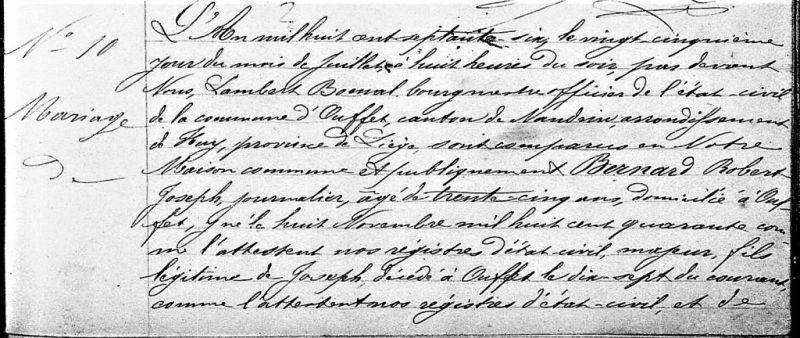 N° 10
Mariage
De
L'An mil huit cent septante-six, le vingt cinquième
jour du mois de Juillet, à huit heures du soir, par devant
Nous, Lambert Bonval bourgmestre officier de l'état-civil
de la commune d'Ouffet, canton de Nandrin, arrondissement
de Huy, province de Liège, sont comparus en Notre
Maison commune et publiquement Bernard Robert
Joseph, journalier, âgé de trente-cinq ans, domicilié à Ouf-
fet, y né le huit Novembre mil huit cent quarante com-
me l'attestent nos régistres d'état-civil, majeur, fils
légitime de Joseph, décédé à Ouffet le dix-sept du courant,
comme l'attestent nos régistres d'état-civil, et de